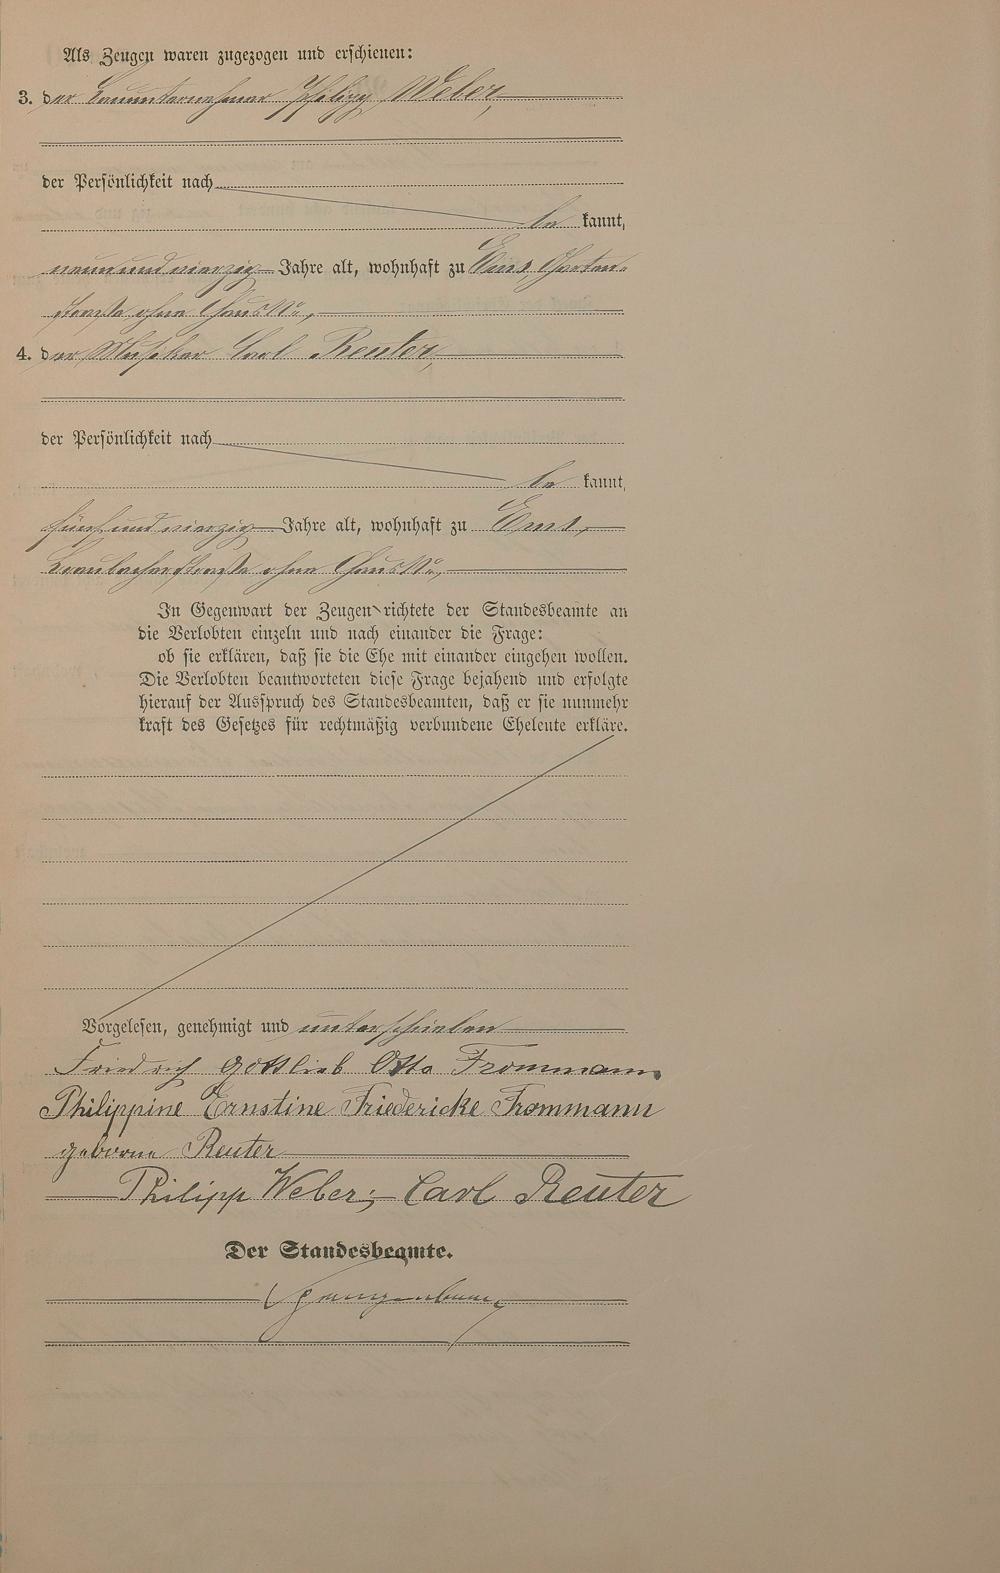 Als Zeugen waren zugezogen und erschienen:
3. der Bauunternehmer Philipp Weber,
der Persönlichkeit nach
be kannt,
neunundvierzig Jahre alt, wohnhaft zu Ems, Garten-
straße ohne Haus No,
4. der Musiker Carl Reuter,
der Persönlichkeit nach
be kannt,
fünfundvierzig Jahre alt, wohnhaft zu Ems,
Braubacherstraße ohne Haus No,
In Gegenwart der Zeugen richtete der Standesbeamte an
die Verlobten einzeln und nach einander die Frage:
ob sie erklären, daß sie die Ehe mit einander eingehen wollen.
Die Verlobten beantworteten diese Frage bejahend und erfolgte
hierauf der Ausspruch des Standesbeamten, daß er sie nunmehr
kraft des Gesetzes für rechtmäßig verbundene Eheleute erkläre.
Vorgelesen, genehmigt und unterschrieben
Friedrich Gottlieb Otto Frommann
Philippine Ernstine Friedericke Frommann
geborne Reuter
Philipp Weber; Carl Reuter
Der Standesbeamte.
Spangenberg